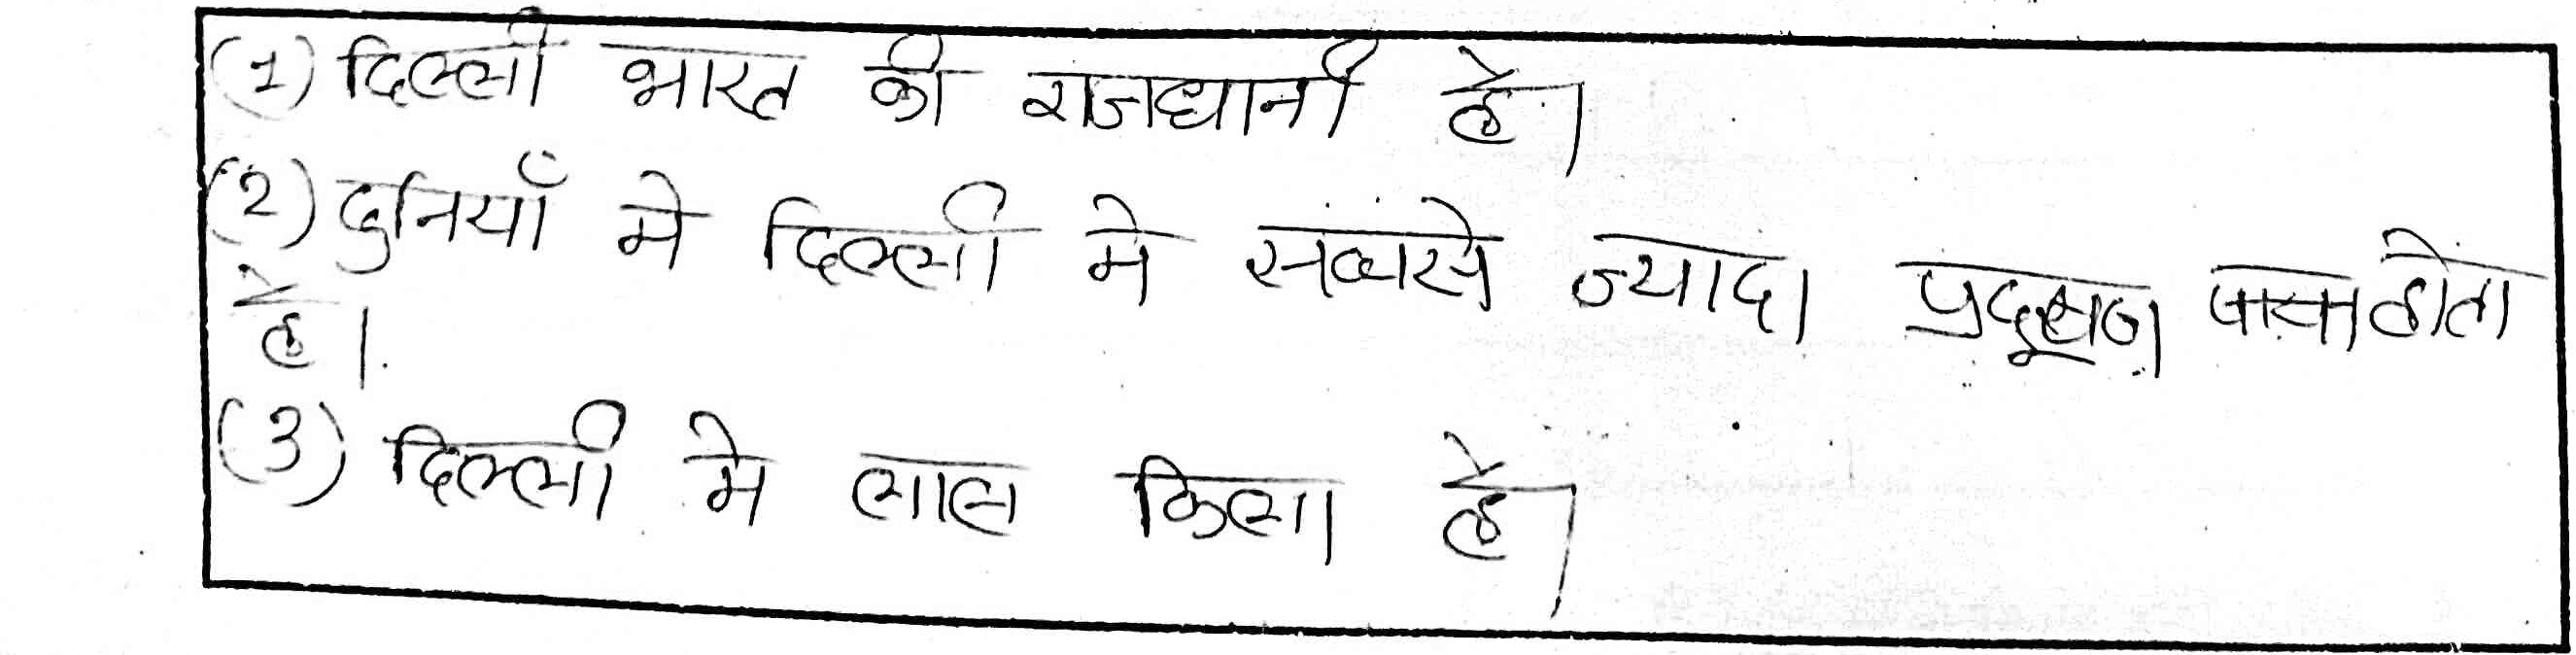 (1) दिल्ली भारत की राजधानी है।
(2) दुनियाँ मे दिल्ली मे सबसे ज्यादा प्रदूषण होता
है।
(3) दिल्ली मे लाल किला है।